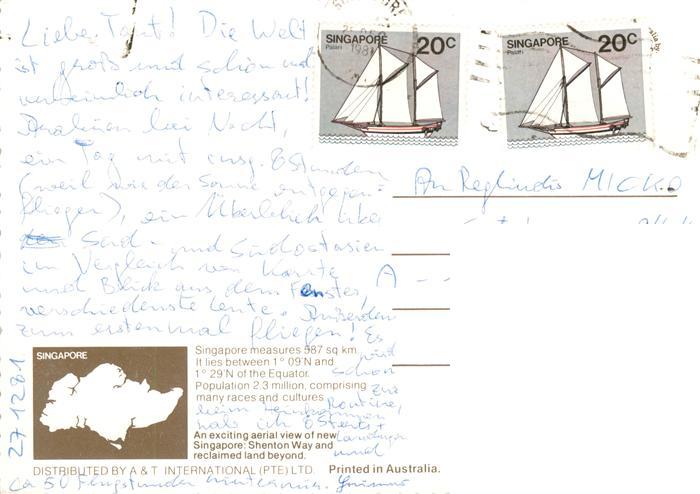 Liebe Tant! Die Welt
ist groß und schön und
unheimlich interessant!
Arabien bei Nacht,
ein Tag mit insg. 6 Stunden
(weil wir der Sonne entgegen-
fliegen), ein Überblick über
Süd- und Südostasien
im Vergleich von Karte
und Blick aus dem Fenster,
verschiedenste Leute. Außerdem
zum erstenmal fliegen! Es
wird
schon
zur
Routine,
ich
Landungen
und
ca 50 Flugstunden hinter mir.
27 12 81
SINGAPORE 20c
Palari
SINGAPORE 20c
Palari
1981
An Reglindis MICKO
A - -
SINGAPORE
Singapore measures 587 sq km.
It lies between 1° 09'N and
1° 29'N of the Equator.
Population 2.3 million, comprising
many races and cultures
An exciting aerial view of new
Singapore: Shenton Way and
reclaimed land beyond.
DISTRIBUTED BY A & T INTERNATIONAL (PTE) LTD. Printed in Australia.